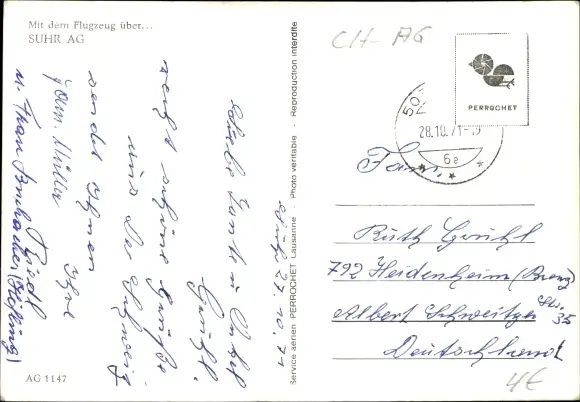 Mit dem Flugzeug über...
SUHR AG
Suhr 27.10.71
Liebe Tante u. Onkel
Gruhl.
recht schöne Grüße
aus der Schweiz
sendet Ihnen
Ihre
Fam. Müller
u. Frau
AG 1147
Service aérien PERROCHET Lausanne - Photo véritable - Reproduction interdite
CH - AG
PERROCHET
50
28.10.71-19
6e
Fam.
Ruth Gruhl
792 Heidenheim (Brenz)
Albert Schweitzer Str. 35
Deutschland
4€